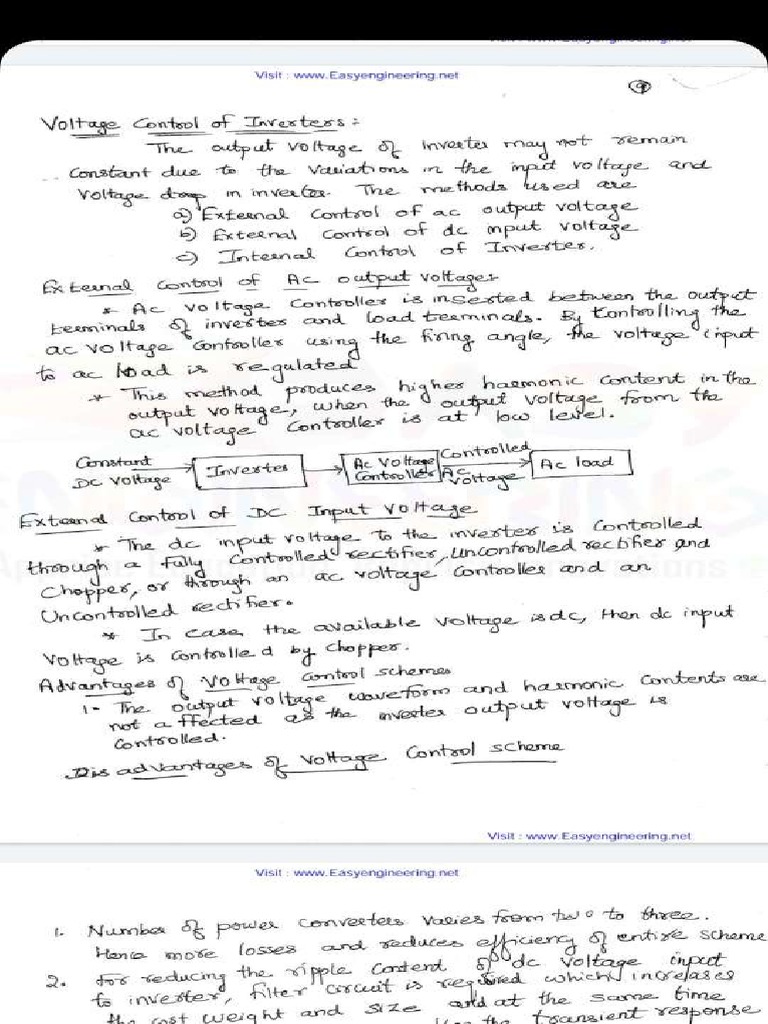 Visit : www.Easyengineering.net
9
Voltage Control of Inverters:
The output voltage of inverter may not remain
constant due to the variations in the input voltage and
voltage drop in inverter. The methods used are
a) External control of ac output voltage
b) External control of dc input voltage
c) Internal control of Inverter.
External control of Ac output voltage
* Ac voltage controller is inserted between the output
terminals of inverter and load terminals. By controlling the
ac voltage controller using the firing angle, the voltage input
to ac load is regulated
* This method produces higher harmonic content in the
output voltage, when the output voltage from the
ac voltage controller is at low level.
Constant
DC Voltage
Inverter
Ac Voltage
Controller
Controlled
AC
Voltage
Ac load
External control of DC Input Voltage
* The dc input voltage to the inverter is controlled
through a fully controlled rectifier, uncontrolled rectifier and
chopper, or through an ac voltage controller and an
Uncontrolled rectifier.
* In case the available voltage is dc, then dc input
voltage is controlled by chopper.
Advantages of Voltage control schemes
1- The output voltage waveform and harmonic contents are
not affected as the inverter output voltage is
controlled.
Disadvantages of Voltage Control scheme
Visit : www.Easyengineering.net
Visit : www.Easyengineering.net
1. Number of power converters varies from two to three.
Hence more losses and reduces efficiency of entire scheme
2. for reducing the ripple content of dc voltage input
to inverter, filter circuit is required which increases
the cost weight and size and at the same time
the transient response